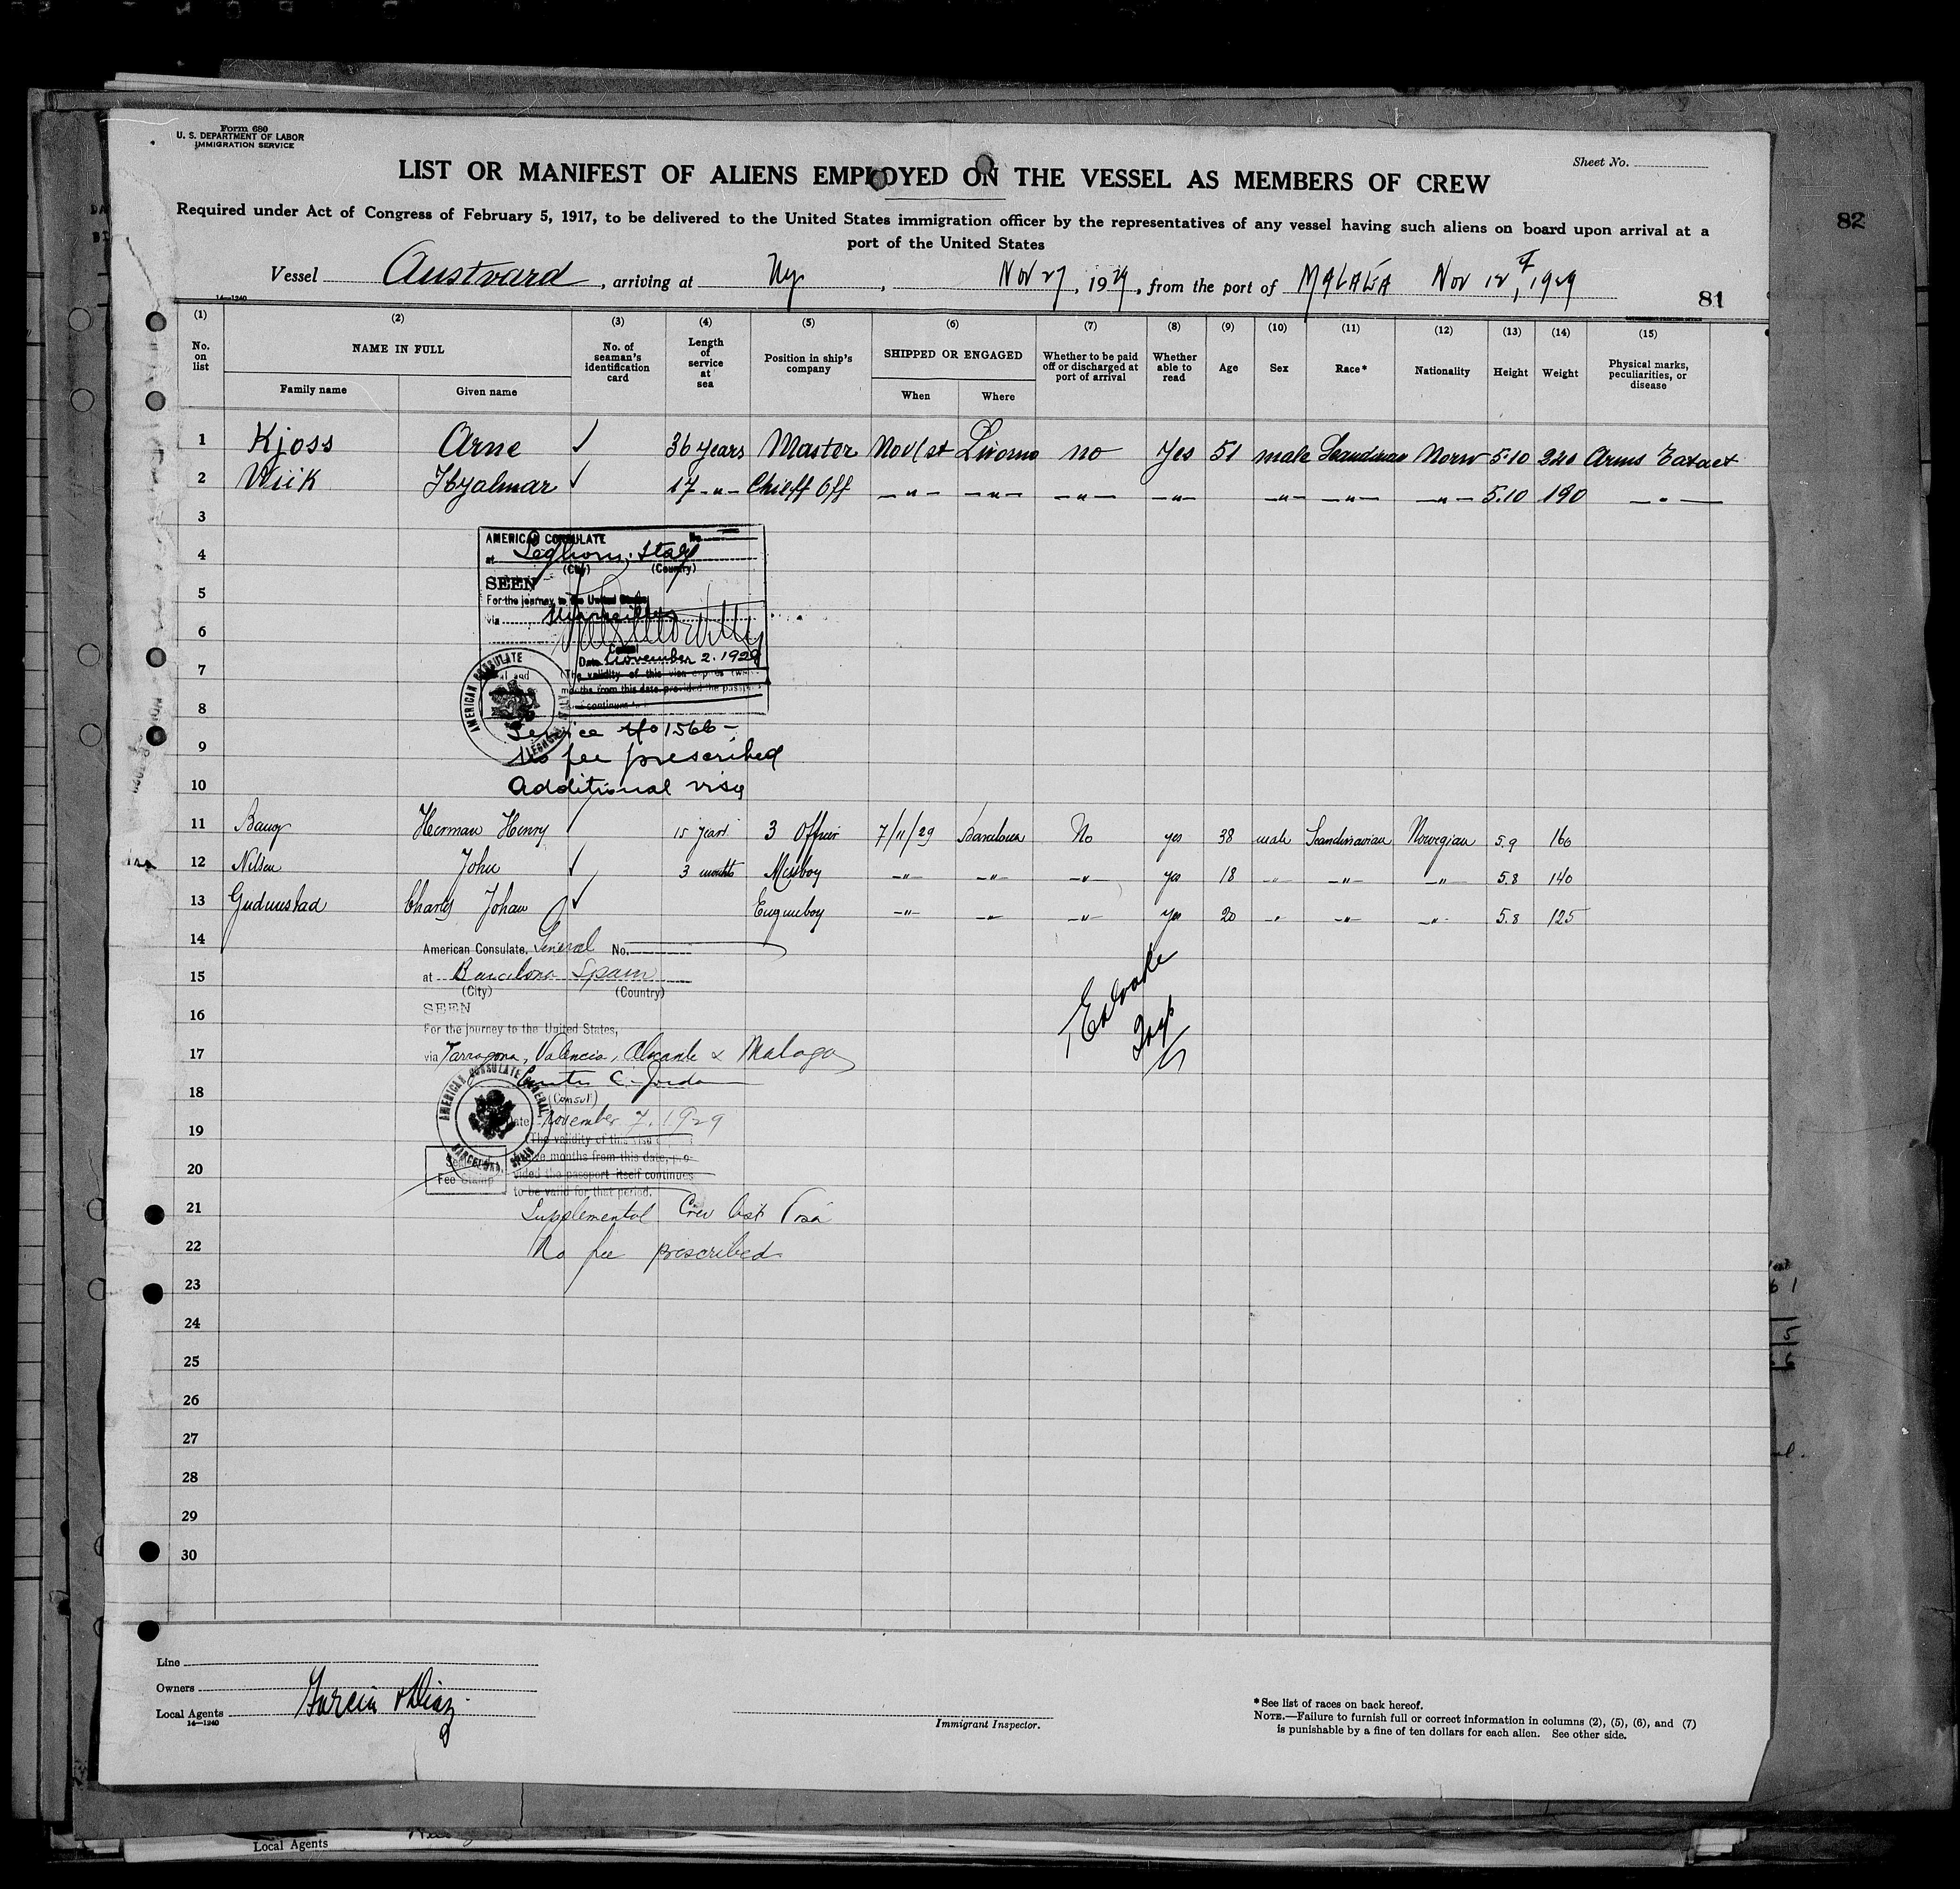 Form 680
U. S. DEPARTMENT OF LABOR
IMMIGRATION SERVICE
Sheet No.
LIST OR MANIFEST OF ALIENS EMPLOYED ON THE VESSEL AS MEMBERS OF CREW
Required under Act of Congress of February 5, 1917, to be delivered to the United States immigration officer by the representatives of any vessel having such aliens on board upon arrival at a
port of the United States
82
Vessel Austvard, arriving at Ny, Nov 27, 1929, from the port of MALAGA Nov 12, 1929
14—1240
81
(1) (2) (3) (4) (5) (6) (7) (8) (9) (10) (11) (12) (13) (14) (15)
No. on list
NAME IN FULL
Family name
Given name
No. of seaman's identification card
Length of service at sea
Position in ship's company
SHIPPED OR ENGAGED
When
Where
Whether to be paid off or discharged at port of arrival
Whether able to read
Age
Sex
Race*
Nationality
Height
Weight
Physical marks, peculiarities, or disease
1 Kjoss Arne ✓ 36 years Master Nov 1st Livorno no Yes 51 male Norw 5.10 Arms
2 Wiik Hjalmar ✓ 17 -"- Chieff Off -"- -"- -"- -"- -"- -"- -"- 5.10 190 -"-
3
4
5
6
7
8
9
10
AMERICAN CONSULATE No.
at Leghorn, Italy
(City) (Country)
SEEN
For the journey to the United States
via Marseilles
Consul
Date November 2. 1929
(The validity of this visa expires
months from this date provided the
continues
AMERICAN CONSULATE
LEGHORN, ITALY
Service No 1566 -
No fee prescribed
Additional visa
11 Herman Henry ✓ 15 years 3 Officer 7/11/29 Barcelona No yes 38 male Scandinavian Norwegian 5.9 160
12 Nilsen John ✓ 3 months Messboy -"- -"- -"- yes 18 -"- -"- -"- 5.8 140
13 Gudmestad Charles Johan ✓ Engineboy -"- -"- -"- yes 20 -"- -"- -"- 5.8 125
14
15
16
17
18
19
20
21
22
23
24
25
26
27
28
29
30
American Consulate, General No.
at Barcelona Spain
(City) (Country)
SEEN
For the journey to the United States,
via Tarragona, Valencia, Alicante & Malaga
Curtis C. Jordan
(Consul)
Date November 7, 1929
(The validity of this visa
months from this date, pro-
vided the passport itself continues
to be valid for that period.
AMERICAN CONSULATE GENERAL
BARCELONA, SPAIN
Fee Stamp
Supplemental Crew list Visa
No fee prescribed
Line
Owners
Local Agents Garcia & Diaz
14—1240
Immigrant Inspector.
*See list of races on back hereof.
NOTE.—Failure to furnish full or correct information in columns (2), (5), (6), and (7)
is punishable by a fine of ten dollars for each alien. See other side.
Local Agents